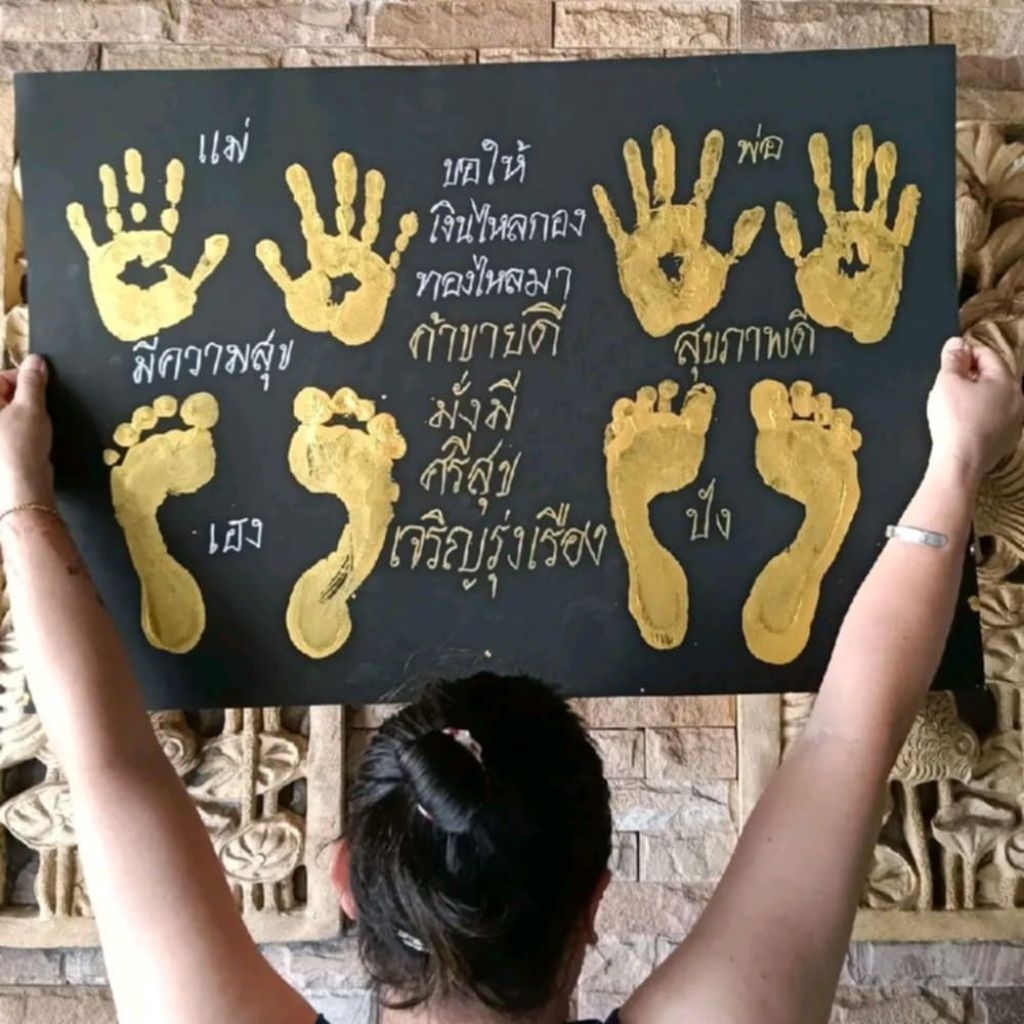 แม่
พ่อ
ขอให้
เงินไหลกอง
ทองไหลมา
ค้าขายดี
มีความสุข
สุขภาพดี
มั่งมี
ศรีสุข
เจริญรุ่งเรือง
เฮง
ปัง